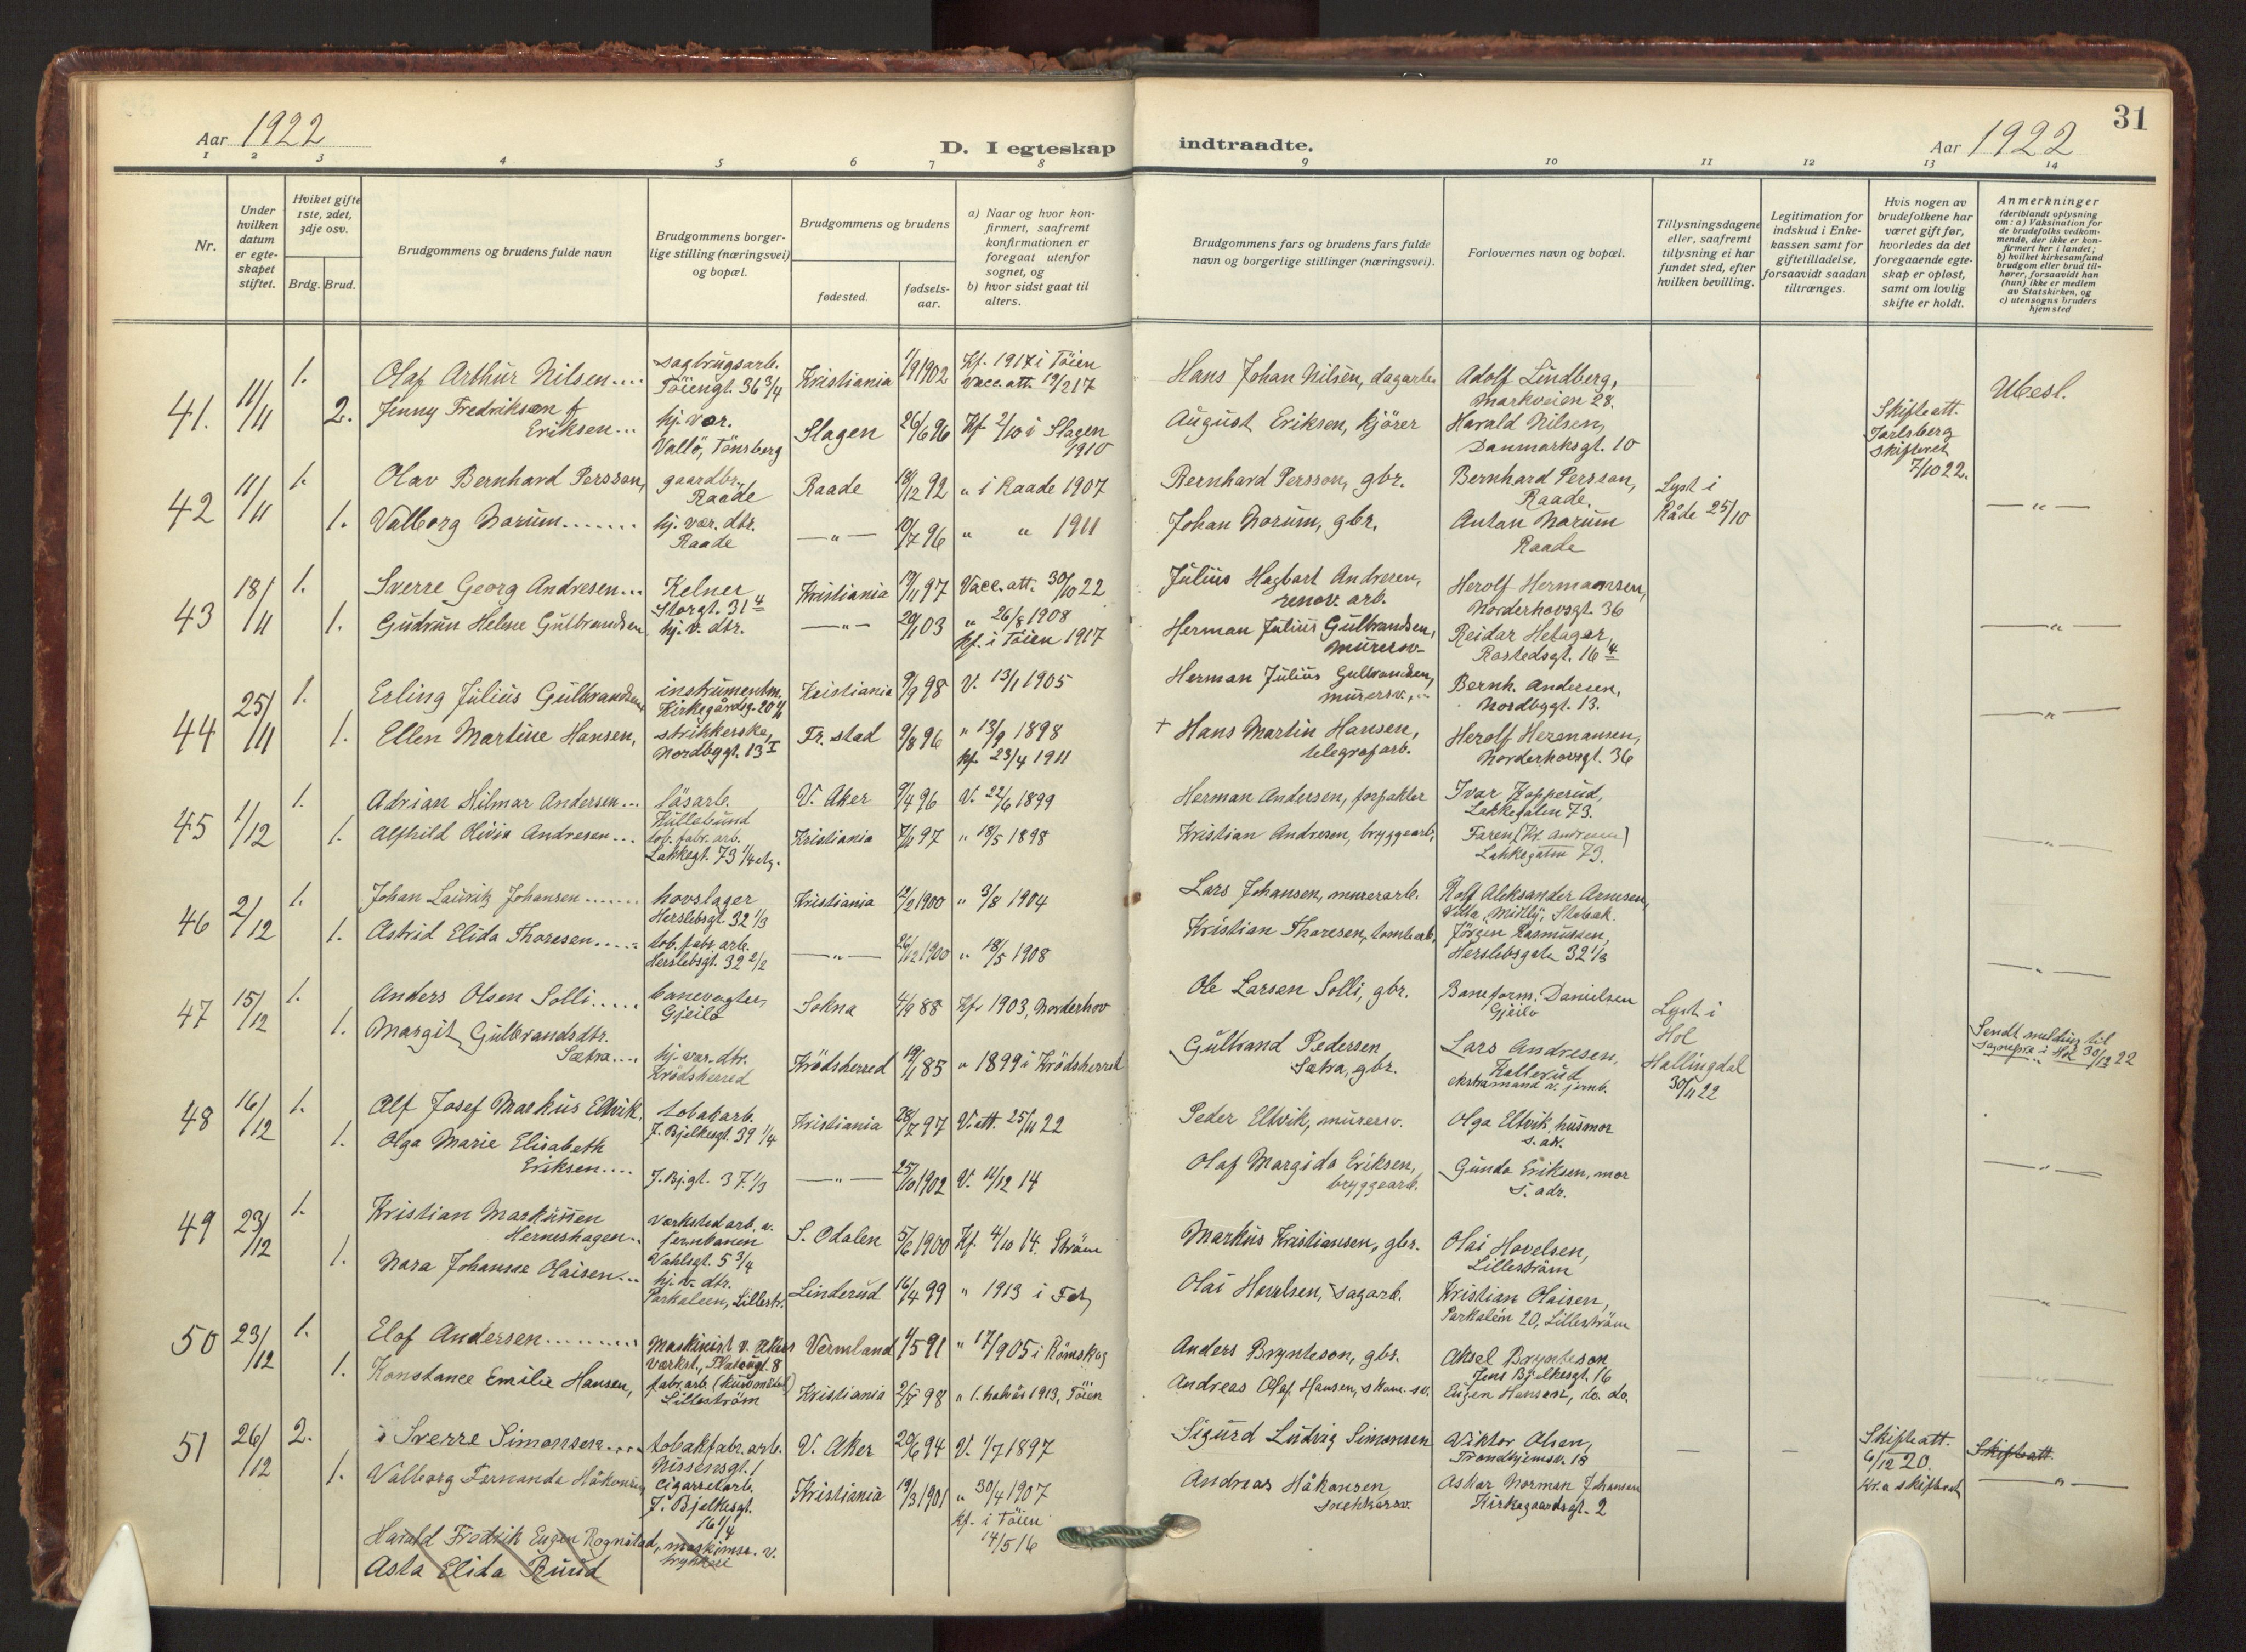 31
Aar 1922
D. I egteskap indtraadte.
Aar 1922
1 2 3 4 5 6 7 8 9 10 11 12 13 14
Nr.
Under hvilken datum er egteskapet stiftet.
Hviket gifte 1ste, 2det, 3dje osv.
Brdg. Brud.
Brudgommens og brudens fulde navn
Brudgommens borgerlige stilling (næringsvei) og bopæl.
Brudgommens og brudens
fødested.
fødselsaar.
a) Naar og hvor konfirmert, saafremt konfirmationen er foregaat utenfor sognet, og
b) hvor sidst gaat til alters.
Brudgommens fars og brudens fars fulde navn og borgerlige stillinger (næringsvei).
Forlovernes navn og bopæl.
Tillysningsdagene eller, saafremt tilysning ei har fundet sted, efter hvilken bevilling.
Legitimation for indskud i Enkekassen samt for giftetilladelse, forsaavidt saadan tiltrænges.
Hvis nogen av brudefolkene har været gift før, hvorledes da det foregaaende egteskap er opløst, samt om lovlig skifte er holdt.
Anmerkninger
(deriblandt oplysning om: a) Vaksination for de brudefolks vedkommende, der ikke er konfirmert her i landet; b) hvilket kirkesamfund brudgom eller brud tilhører, forsaavidt han (hun) ikke er medlem av Statskirken, og c) utensogns bruders hjemsted
41. 11/11 1. Olaf Arthur Nilsen.... sagbrugsarb. Töiengt. 36 3/4 Kristiania 1/9 1902 Kf. 1917 i Töien Vacc. att. 19/2 17 Hans Johan Nilsen, dagarb. Adolf Lindberg, Markveien 28. Ubesl.
2. Jenny Fredriksen f. Eriksen... hj. vær. Vallö, Tönsberg Slagen 26/6 96 Kf. 2/10 i Slagen 1910 August Eriksen, kjörer Harald Nilsen, Danmarksgt. 10 Skifteatt. Jarlsberg skifteret 7/10 22.
42 11/11 1. Olav Bernhard Persson, gaardbr. Raade Raade 18/12 92 " i Raade 1907 Bernhard Persson, gbr. Bernhard Persson, Raade. Lyst i Råde 25/10 — " —
1. Valborg Norum....... hj. vær. dtr. Raade — " — 10/7 96 " " 1911 Johan Norum, gbr. Anton Norum Raade
43 18/11 1. Sverre Georg Andresen... Kelner Storgt. 31 4 Kristiania 19/11 97 Vacc. att. 30/10 22 Julius Hagbart Andresen, renov. arb. Herolf Hermansen, Norderhovsgt. 36
1. Gudrun Helene Gulbrandsen hj. v. dtr. — " — 20/1 03 " 26/8 1908 kf. i Töien 1917 Herman Julius Gulbrandsen, murersv. Reidar Hetager, Rostedsgt. 16 4 — " —
44 25/11 1. Erling Julius Gulbrandsen instrumentm. Kirkegårdsg. 20 Kristiania 9/9 98 V. 13/1 1905 Herman Julius Gulbrandsen, murersv. Bernh. Andersen, Nordbygt. 13. — " —
1. Ellen Martine Hansen, strikkerske, Nordbygt. 13 I Fr. stad 9/8 96 " 13/9 1898 kf. 23/4 1911 + Hans Martin Hansen, telegrafarb. Herolf Hermansen, Norderhovsgt. 36
45 1/12 1. Adrian Hilmar Andersen... läsarb. V. Aker 9/4 96 V. 22/6 1899 Herman Andersen, forpakter Ivar Kopperud, Lakkegaten 73.
1. Alfhild Olivia Andresen... tob. fabr. arb. Lakkegt. 73 1/4 etg. Kristiania 7/11 97 " 18/5 1898 Kristian Andresen, bryggearb. Faren (Kr. Andresen) Lakkegaten 73. — " —
46 2/12 1. Johan Lauritz Johansen....... hovslager Herslebsgt. 32 1/3 Kristiania 12/2 1900 " 3/8 1904 Lars Johansen, murerarb. Rolf Aleksander Arnesen, Villa , Stabæk.
1. Astrid Elida Thoresen..... tob. fabr. arb. Herslebsgt. 32 2/2 — " — 26/12 1900 " 18/5 1908 Kristian Thoresen, tomtearb. Jörgen Rasmussen, Herslebsgate 32 1/3 — " —
47 15/12 1. Anders Olsen Solli..... banevogter, Gjeilo Sokna 4/9 88 Kf. 1903, Norderhov Ole Larsen Solli, gbr. Baneform. Danielsen Gjeilo Lyst i Hol Hallingdal 30/11 22
1. Margit Gulbrandsdtr. Sætra.... hj. vær. dtr. Krödsherred Krödsherred 19/1 85 " 1899 i Krödsherred Gulbrand Pedersen Sætra, gbr. Lars Andresen, Kallerud ekstramand v. jernb. Sendt melding til sognepr. i Hol 30/12 22
48 16/12 1. Alf Josef Markus Eltvik, tobakarb. J. Bjelkesgt. 39 1/4 Kristiania 28/7 97 V. att. 25/11 22 Peder Eltvik, murersv. Olga Eltvik, husmor s. adr.
1. Olga Marie Elisabeth Eriksen.... J. Bj. gt. 37 1/3 — " — 25/10 1902 V. 11/12 14 Olaf Margido Eriksen, bryggearb. Gunda Eriksen, mor s. adr. — " —
49 23/12 1. Kristian Markussen Herneshagen.. værkstedarb. v. jernbanen Vahlsgt. 5 3/4 S. Odalen 5/6 1900 Kf. 4/10 14. Ström Markus Kristiansen, gbr. Olai Hovelsen, Lilleström
1. Nora Johanne Olaisen... hj. v. dtr. Parkaleen, Lillestr. Linderud 16/4 99 " 1913 i Fet Olai Hovelsen, sagarb. Kristian Olaisen, Parkaleen 20, Lilleström — " —
50 23/12 1. Elof Andersen......... Maskinist v. Akers værkst., Platougt. 8 Vermland 1/5 91 " 17/9 05 i Römskog Anders Brynteson, gbr. Aksel Brynteson Jens Bjelkesgt. 16
1. Konstance Emilie Hansen, fabr. arb. Lilleström Kristiania 2/7 98 " 1. halvår 1913, Töien Andreas Olaf Hansen, skom. sv. Eugen Hansen, do. do. — " —
51 26/12 2. Sverre Simonsen.... tobakfabr. arb. Nissensgt. 1 V. Aker 20/6 94 V. 1/7 1897 Sigurd Ludvig Simonsen Viktor Olsen, Trondhjemsv. 18 — — Skifteatt. 6/12 20. Kr.a skifteret Skifteatt
1. Valborg Fernanda Håkonsen Cigarretarb. J. Bjelkesgt. 16 1/4 Kristiania 19/3 1901 " 30/4 1907 kf. i Töien 14/5 16 Andreas Håkonsen snekkersv. Askar Norman Johansen Kirkegaardsgt. 2 — " —
Harald Fredrik Eugen Rognstad, maskinss. v. trykkeri
Asta Elida Ruud